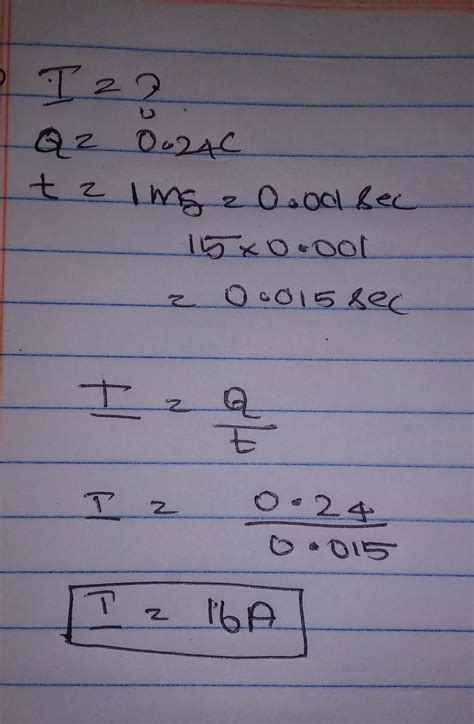 I = ?
Q = 0.24C
t = 1ms = 0.001 sec
15 x 0.001
= 0.015 sec
I = Q
t
I = 0.24
0.015
I = 16A